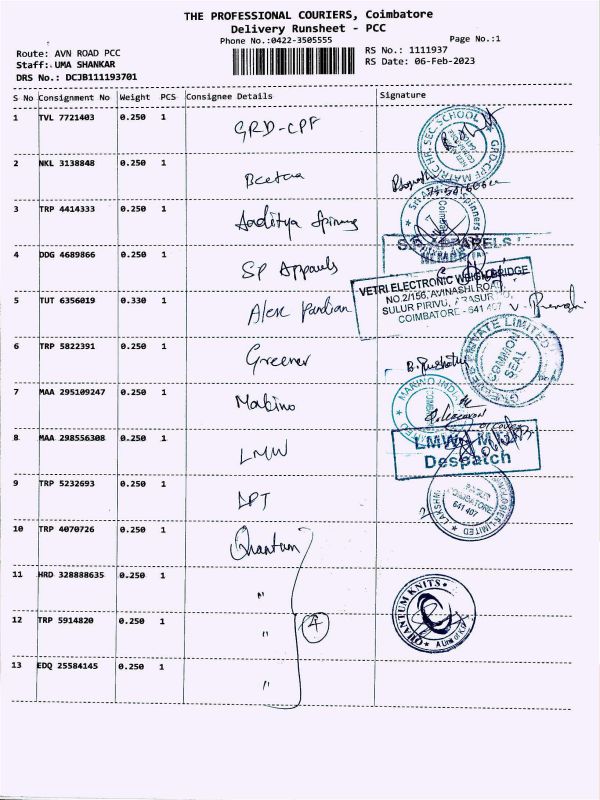 THE PROFESSIONAL COURIERS, Coimbatore
Delivery Runsheet - PCC
Phone No.:0422-3505555
Page No.:1
Route: AVN ROAD PCC
RS No.: 1111937
Staff: UMA SHANKAR
RS Date: 06-Feb-2023
DRS No.: DCJB111193701
S No Consignment No Weight PCS Consignee Details Signature
1 TVL 7721403 0.250 1 GRD-CPF
GRD-CPF MATRIC HR. SEC SCHOOL
2 NKL 3138848 0.250 1
3 TRP 4414333 0.250 1 Aaditya Spinning
Spinners
Coimbatore
4 DDG 4689866 0.250 1 SP Apparels
S.P. APPARELS
VETRI ELECTRONIC WEIGHBRIDGE
NO.2/156, AVINASHI ROAD
SULUR PIRIVU, ARASUR
COIMBATORE - 641 407
5 TUT 6356019 0.330 1 Alex Pandian
6 TRP 5822391 0.250 1 Greener
PRIVATE LIMITED
COMMON
SEAL
7 MAA 295109247 0.250 1 Makino
MAKINO INDIA
8 MAA 298556308 0.250 1 LMW
LMW
Despatch
9 TRP 5232693 0.250 1 LPT
LAKSHMI
COIMBATORE
641 407
LIMITED
10 TRP 4070726 0.250 1 Quantum
11 HRD 328888635 0.250 1 "
QUANTUM KNITS
12 TRP 5914820 0.250 1 " 4
13 EDQ 25584145 0.250 1 "